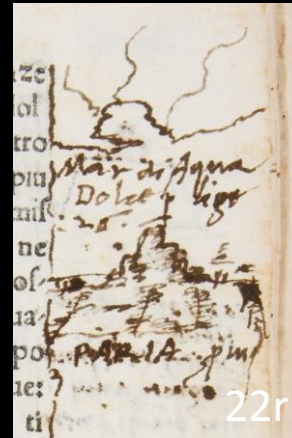 ze
ol
tro
piu
mis
ne
os
ua
po
ue:
ti
Mar di Aqua
Dolce
26.
PARIA
22r